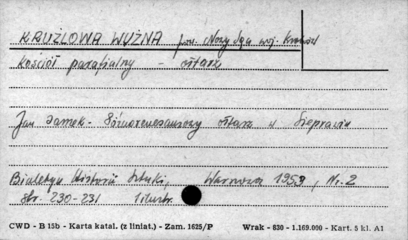 KRUŻLOWA WYŻNA pow. Nowy Sącz woj. Kraków
Kościół parafialny - ołtarz
Jan Samek - Późnorenesansowy ołtarz w Siepraw
Biuletyn Historii Sztuki, Warszawa 1953, Nr. 2
str. 230-231 1 ilustr.
CWD - B 15b - Karta katal. (z liniat.) - Zam. 1625/P Wrak - 830 - 1.169.000 - Kart. 5 kl. A1